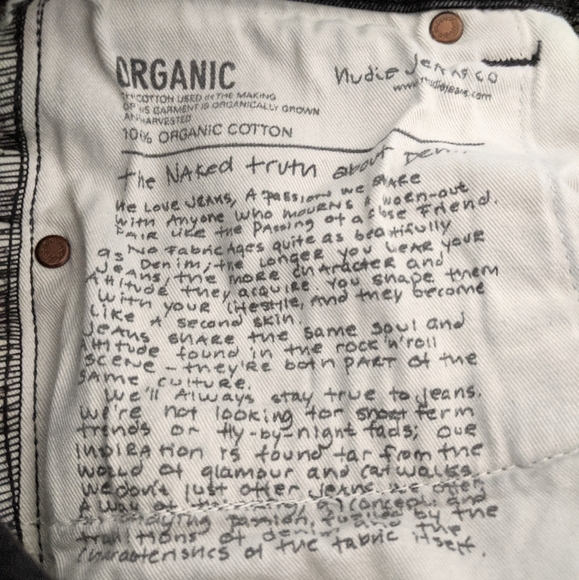 ORGANIC
COTTON USED IN THE MAKING
OF THIS GARMENT IS ORGANICALLY GROWN
AND HARVESTED
100% ORGANIC COTTON
Nudie Jeans co
www.nudiejeans.com
the NAKED truth about Den
We LOVE JEANS, A PASSION we SHARE
with Anyone who mourns A worn-out
PAIR like the PASSING of a close friend.
No fabric Ages quite as beautifully
as Denim; the longer you wear your
Jeans, the more character and
Attitude they acquire. You shape them
with your lifestyle, And they become
like A second skin.
Jeans share the same soul and
Attitude found in the rock'n'roll
scene - they're both PART of the
same culture.
We'll Always stay true to Jeans.
we're not looking for short term
trends or fly-by-night fads; our
INSPIRATION is found far from the
world of glamour and catwalks
We don't just offer Jeans we offer
A way of concept and
passion, by the
traditions of denim and the
characteristics of the fabric itself.